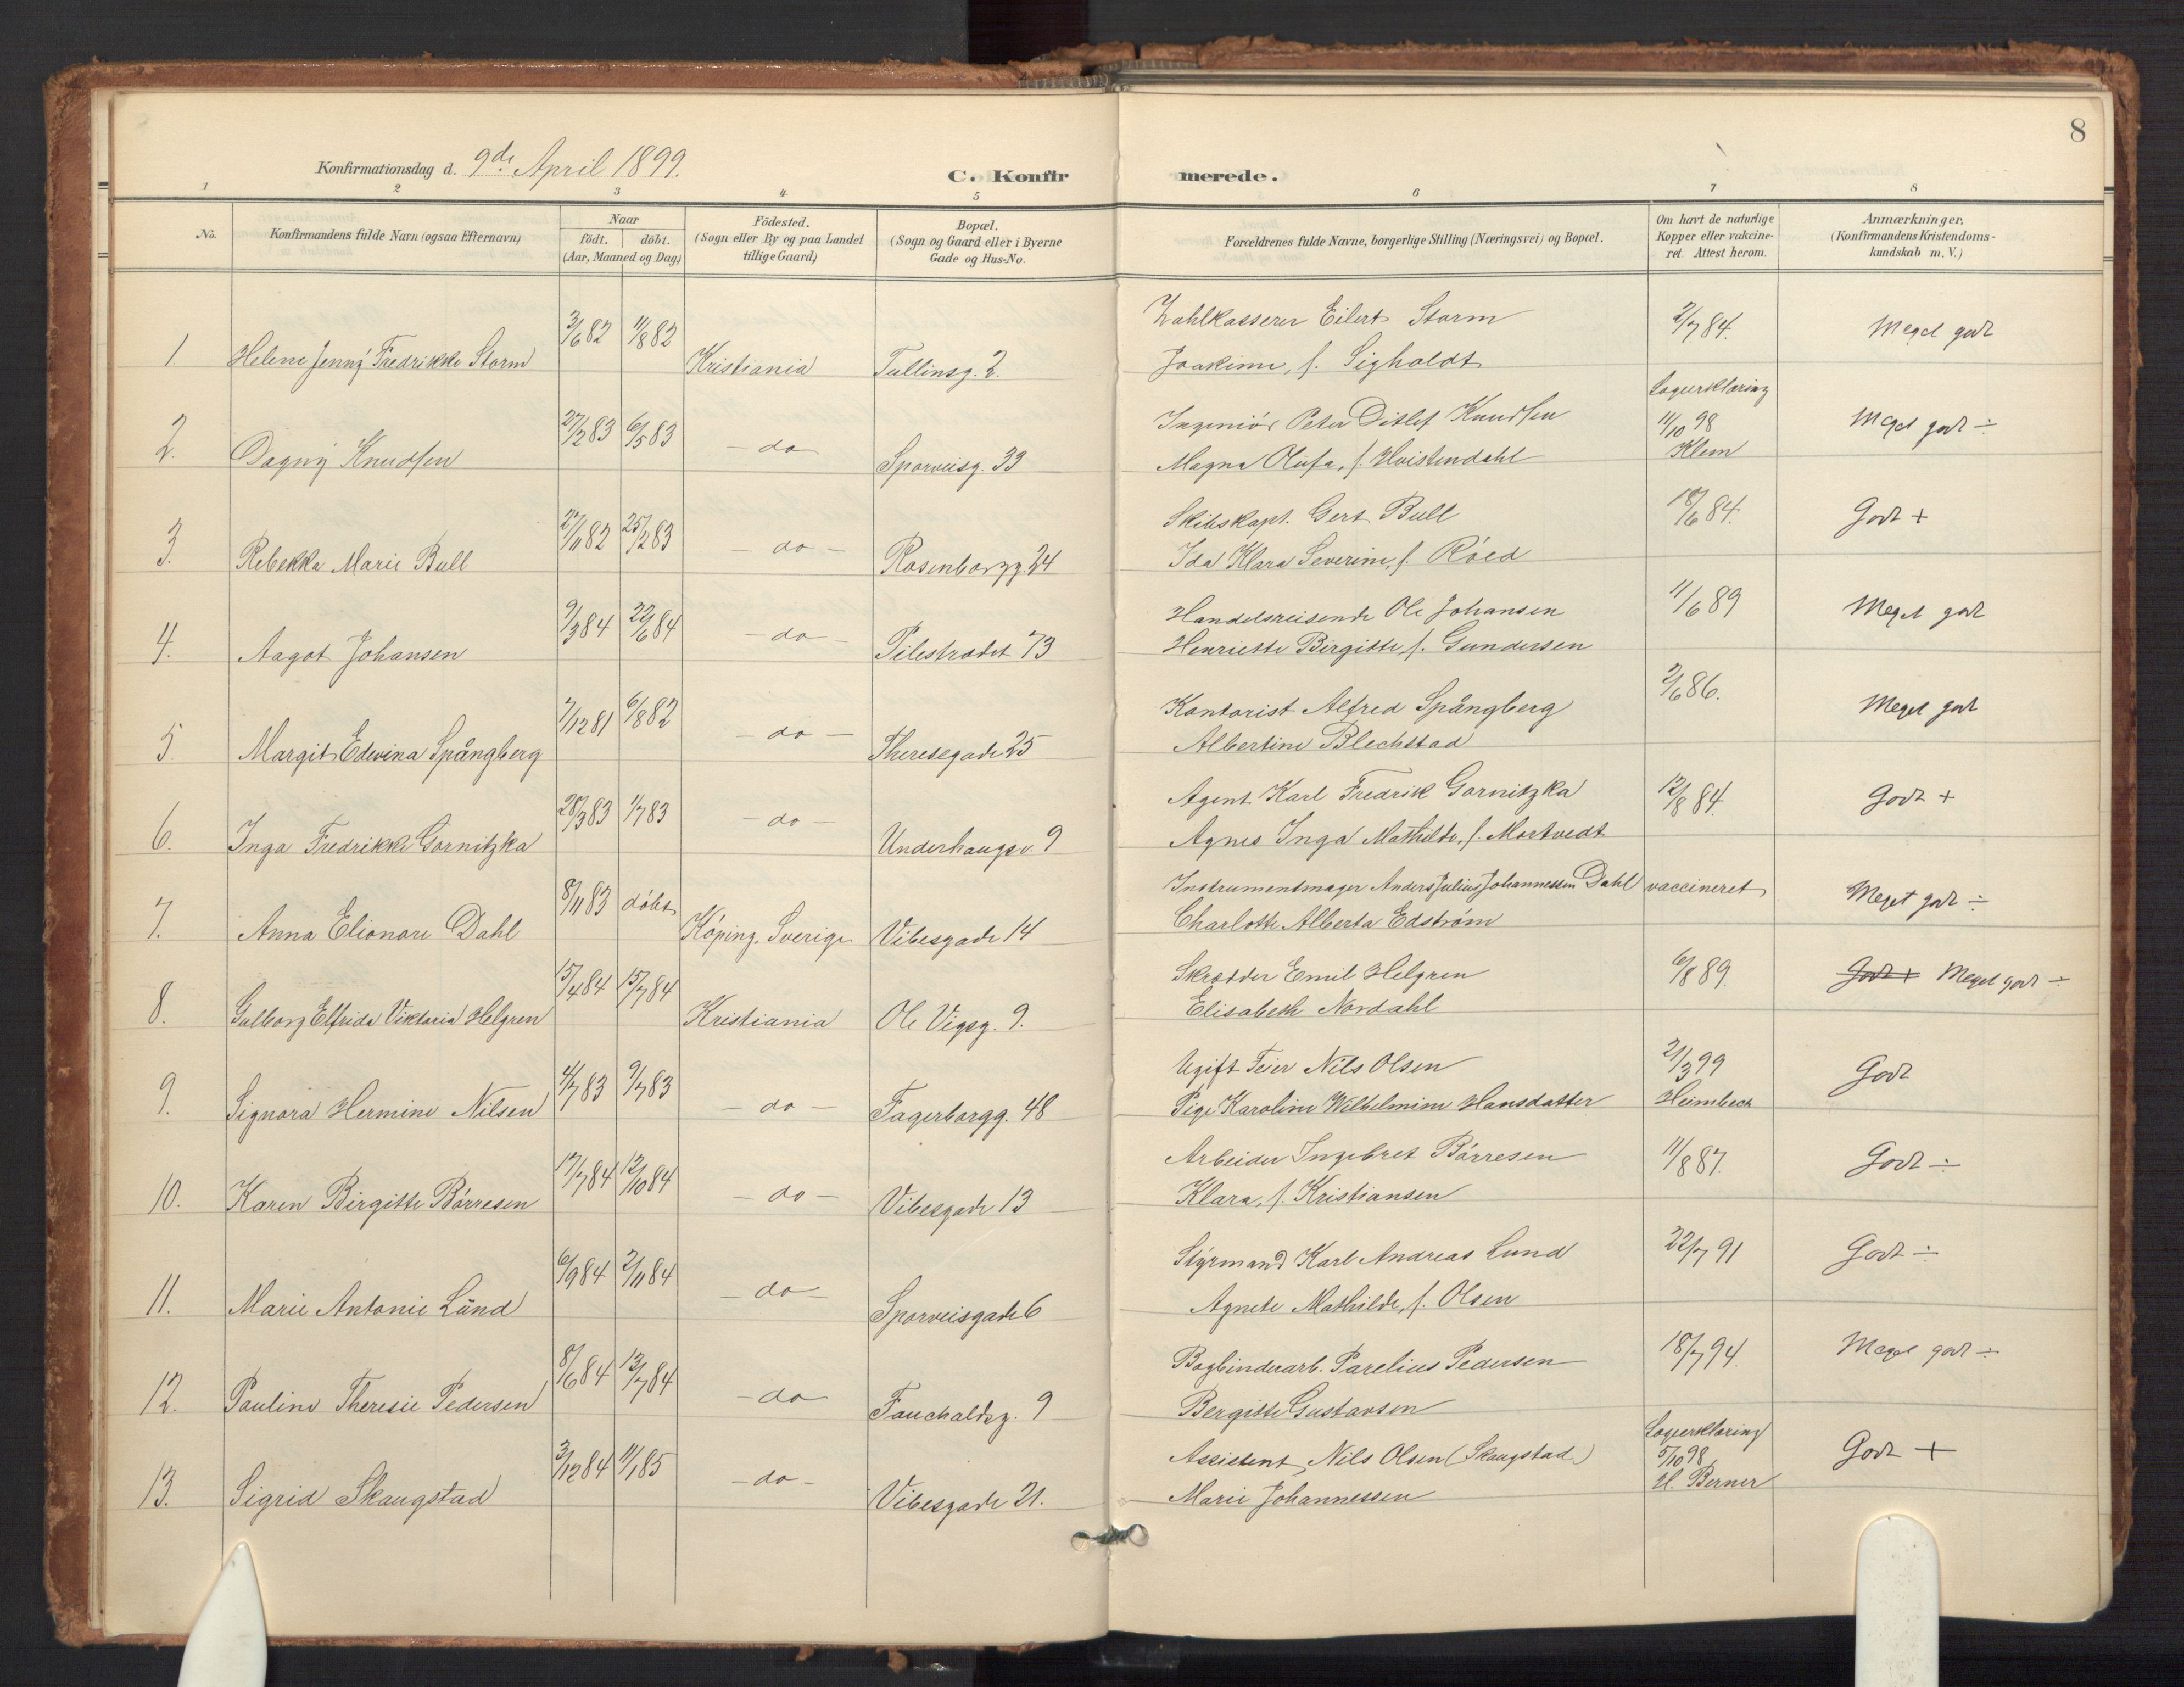 8
Konfirmationsdag d. 9de April 1899.
C. Konfirmerede.
1 2 3 4 5 6 7 8
No.
Konfirmandens fulde Navn (ogsaa Efternavn)
Naar
födt. döbt.
(Aar, Maaned og Dag)
Födested.
(Sogn eller By og paa Landet
tillige Gaard)
Bopæl.
(Sogn og Gaard eller i Byerne
Gade og Hus-No.
Forældrenes fulde Navne, borgerlige Stilling (Næringsvei) og Bopæl.
Om havt de naturlige
Kopper eller vakcine-
ret. Attest herom.
Anmærkninger.
(Konfirmandens Kristendoms-
kundskab m. V.)
1. Helene Jenny Fredrikke Storm 3/6 82 11/8 82 Kristiania Tullinsg. 2.
Zahlkasserer Eilert Storm 2/7 84. Meget godt
Joakime, f. Sigholdt
2. Dagny Knudsen 27/2 83 6/5 83 - do - Sporveisg. 33
Ingeniør Peter Ditlef Knudsen Lægeerklæring 11/10 98 Klem Meget godt ÷
Magna Olufa, f. Hvistendahl
3. Rebekka Marie Bull 27/11 82 25/2 83 - do - Rosenborgg. 24
Skibskapt. Gert Bull 18/6 84. Godt +
Ida Klara Severine, f. Röed
4. Aagot Johansen 9/3 84 22/6 84 - do - Pilestrædet 73
Handelsreisende Ole Johansen 11/6 89 Meget godt
Henriette Birgitte, f. Gundersen
5. Margit Edevina Spångberg 7/12 81 6/8 82 - do - Theresegade 25
Kontorist Alfred Spångberg 2/6 86. Meget godt
Albertine Blechstad
6. Inga Fredrikke Gornitzka 28/3 83 1/7 83 - do - Underhaugsv. 9
Agent Karl Fredrik Gornitzka 12/8 84. Godt +
Agnes Inga Mathilde, f. Mortvedt
7. Anna Elionore Dahl 8/11 83 döbt Köping, Sverige Vibesgade 14
Instrumentmager Anders Julius Johannessen Dahl vaccineret Meget godt ÷
Charlotte Alberta Edström
8. Gulborg Elfrida Viktoria Helgren 15/4 84 15/7 84 Kristiania Ole Vigsg. 9.
Skrædder Emil Helgren 6/8 89. Godt + Meget godt ÷
Elisabeth Nordahl
9. Signora Hermine Nilsen 4/7 83 9/7 83 - do - Fagerborgg. 48
Ugift Feier Nils Olsen 21/3 99 Heimbeck Godt
Pige Karoline Wilhelmine Hansdatter
10. Karen Birgitte Börresen 17/7 84 12/10 84 - do - Vibesgade 13
Arbeider Ingebret Börresen 11/8 87. Godt ÷
Klara, f. Kristiansen
11. Marie Antonie Lund 6/9 84 2/11 84 - do - Sporveisgade 6
Styrmand Karl Andreas Lund 22/7 91 Godt ÷
Agnete Mathilde, f. Olsen
12. Pauline Theresie Pedersen 8/6 84 13/7 84 - do - Fauchaldsg. 9
Bogbinderarb. Parelius Pedersen 18/7 94. Meget godt ÷
Bergitte Gustavsen
13. Sigrid Skaugstad 3/12 84 11/1 85 - do - Vibesgade 21.
Assistent, Nils Olsen (Skaugstad) Lægeerklæring 5/10 98 H. Berner Godt +
Marie Johannessen